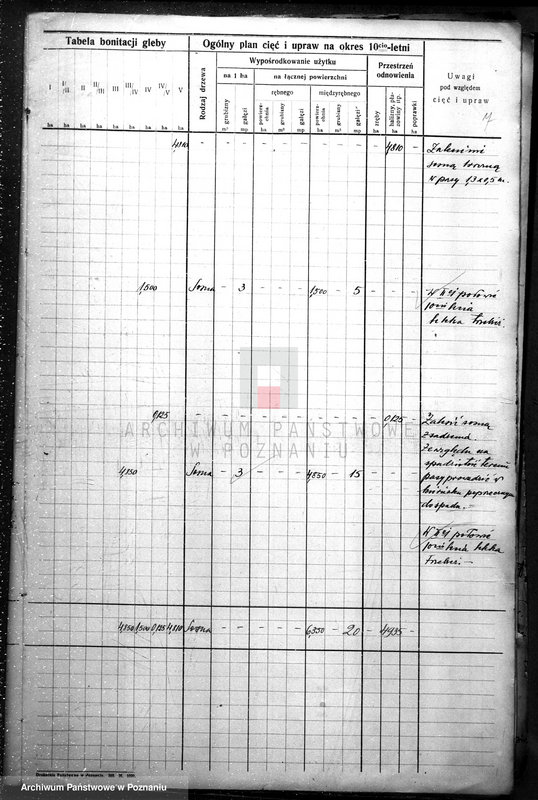 Tabela bonitacji gleby
Ogólny plan cięć i upraw na okres 10cio-letni
Uwagi
pod względem
cięć i upraw
Rodzaj drzewa
Wypośrodkowanie użytku
Przestrzeń
odnowienia
na 1 ha
na łącznej powierzchni
rębnego
międzyrębnego
I
I/II
II
II/III
III
III/IV
IV
IV/V
V
grubizny
gałęzi
powierzchnia
grubizny
gałęzi
powierzchnia
grubizny
gałęzi
zręby
halizny, płazowiny itp.
poprawki
ha ha ha ha ha ha ha ha ha
m³ mp ha m³ mp ha m³ mp ha ha ha
4,810 - - - - - - - - - 4,810 -
sosną
w pasy 1,3 x 0,5 m.
1,500 Sosna - 3 - - - 1,500 - 5 - - -
W II-ej połowie
lekka trzebież.
0,125 - - - - - - - - - 0,125 -
Zalesić sosną
Ze względu na
pasy prowadzić w
kierunku poprzecznym
do spadu.-
4,850 Sosna - 3 - - - 4,850 - 15 - - -
W II-ej połowie
lekka
trzebież.-
4,850 1,500 0,125 4,810 Sosna - - - - - 6,350 - 20 - 4,935 -
ARCHIWUM PAŃSTWOWE
W POZNANIU
Drukarnia Państwowa w Poznaniu.
Archiwum Państwowe w Poznaniu